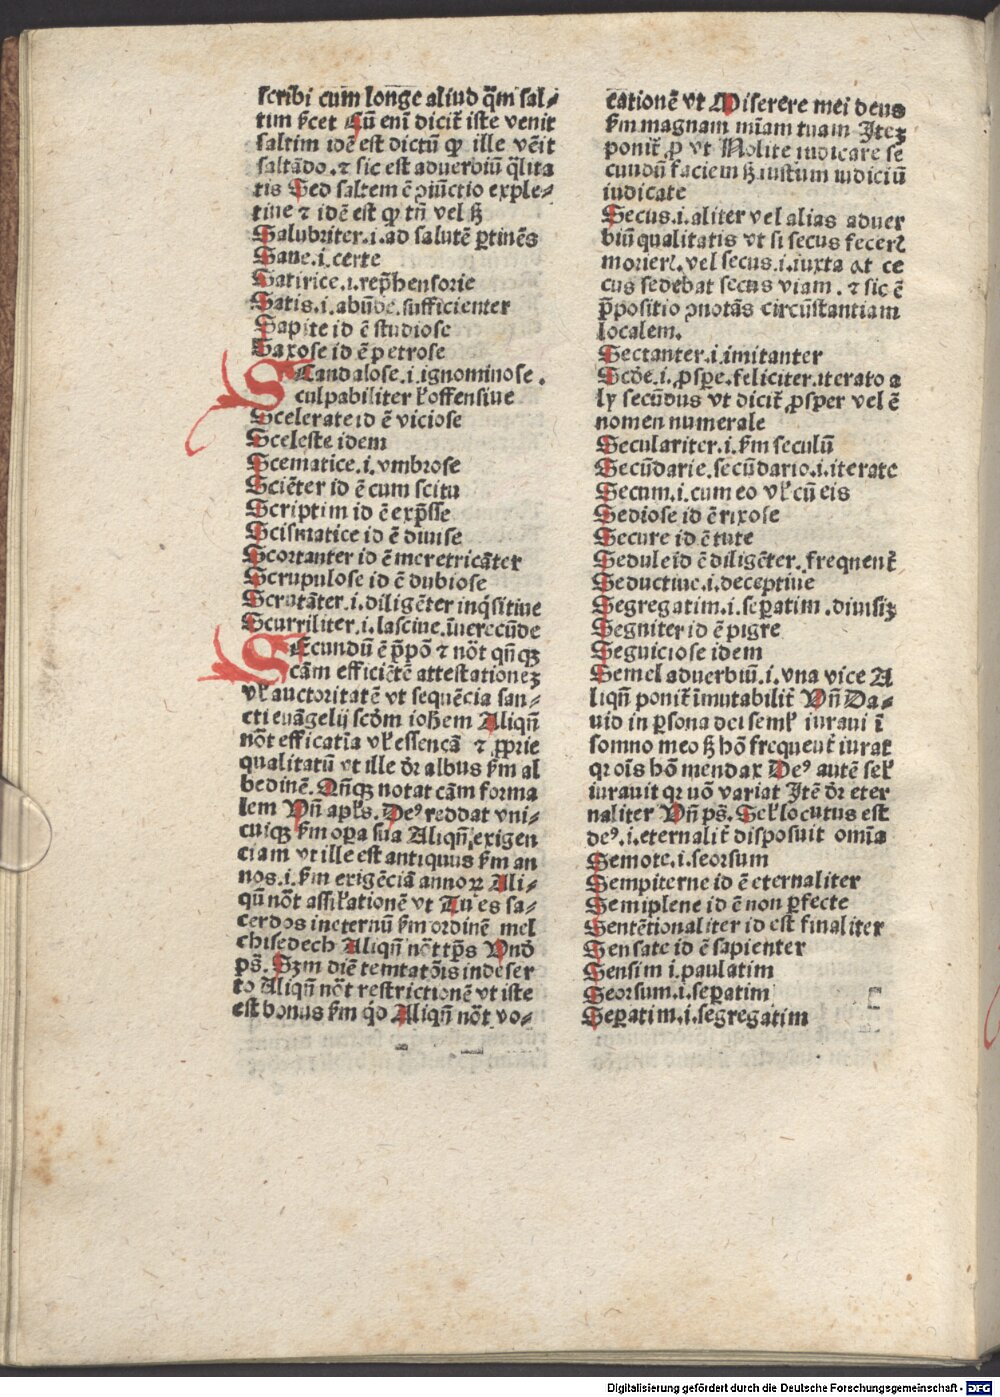 scribi cum longe aliud q̄m sal⸗
tim ꝉcet Cū eni dicit᷑ iste venit
saltim idē est dictū ꝙ ille vēit
saltādo. ⁊ sic est aduerbiū q̄lita
tis Sed saltem ē ꝯiūctio exple⸗
tiue ⁊ idē est ꝙ tn̄ vel ꝫ
Salubriter.i.ad salutē ꝑtinēs
Sane.i.certe
Satirice.i.rep̄hensorie
Satis.i.abūde.sufficienter
Sapite id ē studiose
Saxose id ē petrose
SCandalose.i.ignominose.
culpabiliter ꝉ offensiue
Scelerate id ē viciose
Sceleste idem
Scematice.i.vmbrose
Sciēter id ē cum scitu
Scriptim id ē exp̄sse
Scismatice id ē diuise
Scortanter id ē meretricāter
Scrupulose id ē dubiose
Scrutāter.i.diligēter inq̇sitiue
Scurriliter.i.lasciue.īuerecūde
SEcundū ē p̄pō ⁊ nōt qn̄qꝫ
cām efficiētē attestationeꝫ
vꝉ auctoritatē vt sequēcia san⸗
cti euāgelij scd̄m ioh̄em Aliqn̄
nōt efficatīa vꝉ essencā ⁊ ꝓprie
qualitatū vt ille dr̄ albus ẜm al
bedinē. Qn̄qꝫ notat cām forma
lem Vn̄ apꝉs. Deꝰ reddat vni⸗
cuiqꝫ ẜm oꝑa sua Aliqn̄ exigen
ciam vt ille est antiquus ẜm an
nos.i.ẜm exigēciā annoꝝ Ali⸗
qn̄ nōt assiꝉationē vt Tu es sa⸗
cerdos ineternū ẜm ordinē mel
chisedech Aliqn̄ nōt tp̄s Vnd̄
ps̄. Sꝫm diē temtatōis indeser
to Aliqn̄ nōt restrictionē vt iste
est bonus ẜm q̇d Aliqn̄ nōt vo⸗
cationē vt Miserere mei deus
ẜm magnam mīam tuam Iteꝫ
ponit᷑ ꝓ vt Nolite iudicare se
cundū faciem ꝫ iustum iudiciū
iudicate
Secus.i.aliter vel alias aduer
biū qualitatis vt si secus fecerꝭ
morierꝭ.vel secus.i.iuxta at ce
cus sedebat secus viam. ⁊ sic ē
p̄positio ꝯnotās circūstantiam
localem.
Sectanter.i.imitanter
Scd̄e.i.ꝓspe.feliciter.iterato a
lꝫ secūdus vt dicit᷑ ꝓsper vel ē
nomen numerale
Seculariter.i.ẜm seculū
Secūdarie.secūdario.i.iterate
Secum.i.cum eo vꝉ cū eis
Sediose id ē rixose
Secure id ē tute
Sedule id ē diligēter.frequent᷑
Seductiue.i.deceptiue
Segregatim.i.seꝑatim.diuisiꝫ
Segniter id ē pigre
Seguiciose idem
Semel aduerbiū.i.vna vice A
liqn̄ ponit᷑ īmutabilit᷑ Vn̄ Da⸗
uid in ꝑsona dei semꝉ iuraui ī
somno meo ꝫ hō frequent᷑ iurat
qr oīs hō mendax Deꝰ autē seꝉ
iurauit qr nō variat Itē dr̄ eter
naliter Vn̄ ps̄. Seꝉ locutus est
deꝰ.i.eternalit᷑ disposuit omīa
Semote.i.seorsum
Sempiterne id ē eternaliter
Semiplene id ē non ꝑfecte
Sentētionaliter id est finaliter
Sensate id ē sapienter
Sensim i.paulatim
Seorsum.i.seꝑatim
Seꝑatim.i.segregatim
Digitalisierung gefördert durch die Deutsche Forschungsgemeinschaft - DFG